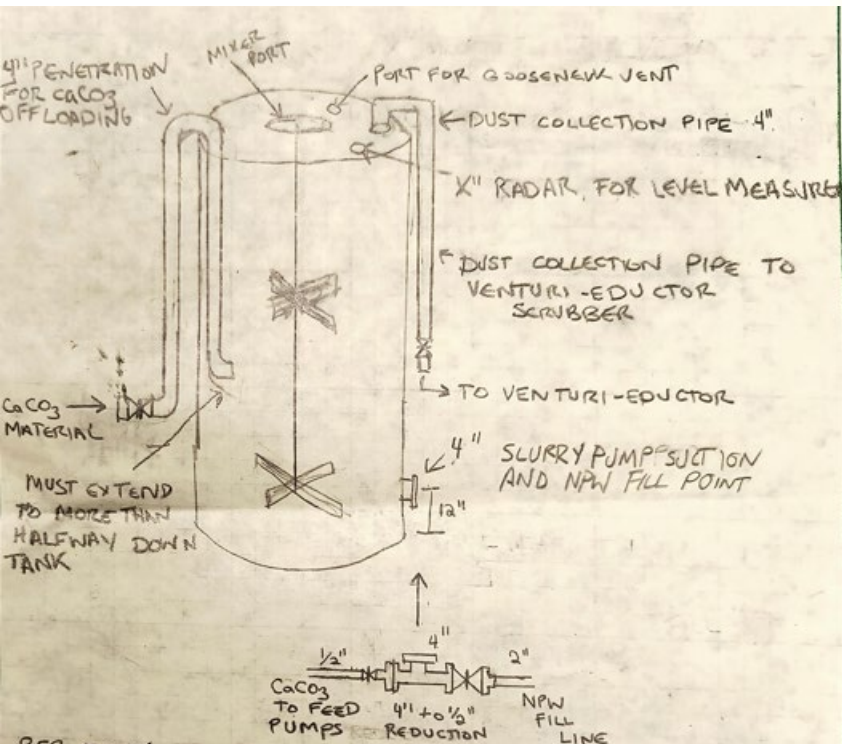 4" PENETRATION
FOR CaCO3
OFFLOADING
MIXER
PORT
PORT FOR GOOSENECK VENT
DUST COLLECTION PIPE 4"
X" RADAR, FOR LEVEL MEASURE
DUST COLLECTION PIPE TO
VENTURI-EDUCTOR
SCRUBBER
TO VENTURI-EDUCTOR
CaCO3
MATERIAL
4"
SLURRY PUMP SUCTION
AND NPW FILL POINT
12"
MUST EXTEND
TO MORE THAN
HALFWAY DOWN
TANK
1/2"
4"
2"
CaCO3
TO FEED
PUMPS
4" to 1/2"
REDUCTION
NPW
FILL
LINE